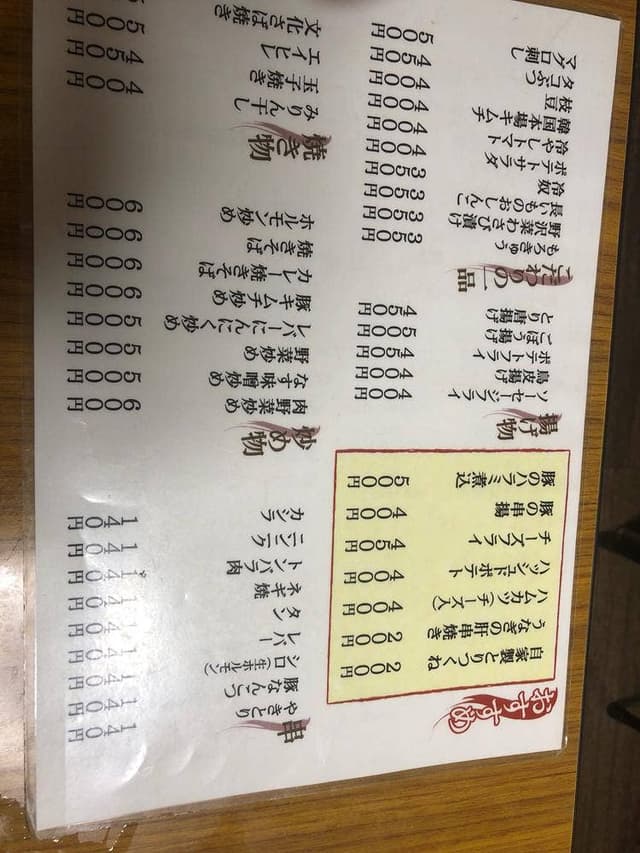 おすすめ
自家製とりつくね 200円
うなぎの肝串焼き 200円
ハムカツ(チーズ入) 400円
ハッシュドポテト 400円
チーズフライ 450円
豚の串揚 400円
豚のハラミ煮込 500円
揚げ物
ソーセージフライ 400円
鳥皮揚げ 400円
ポテトフライ 450円
ごぼう揚げ 500円
とり唐揚げ 450円
こだわりの一品
もろきゅう 350円
野沢菜わさび漬け 350円
長いものおしんこ 350円
冷奴 350円
ポテトサラダ 400円
冷やしトマト 400円
韓国本場キムチ 400円
枝豆 400円
タコぶつ 450円
マグロ刺し 500円
串
やきとり 140円
豚なんこつ 140円
シロ(生ホルモン) 140円
レバー 140円
タン 140円
ネギ焼 140円
トンバラ肉 140円
ニンニク 140円
カシラ 140円
炒め物
肉野菜炒め 600円
なす味噌炒め 500円
野菜炒め 500円
レバーにんにく炒め 500円
豚キムチ炒め 600円
カレー焼きそば 600円
焼きそば 600円
ホルモン炒め 600円
焼き物
みりん干し 400円
玉子焼き 450円
エイヒレ 500円
文化さば焼き